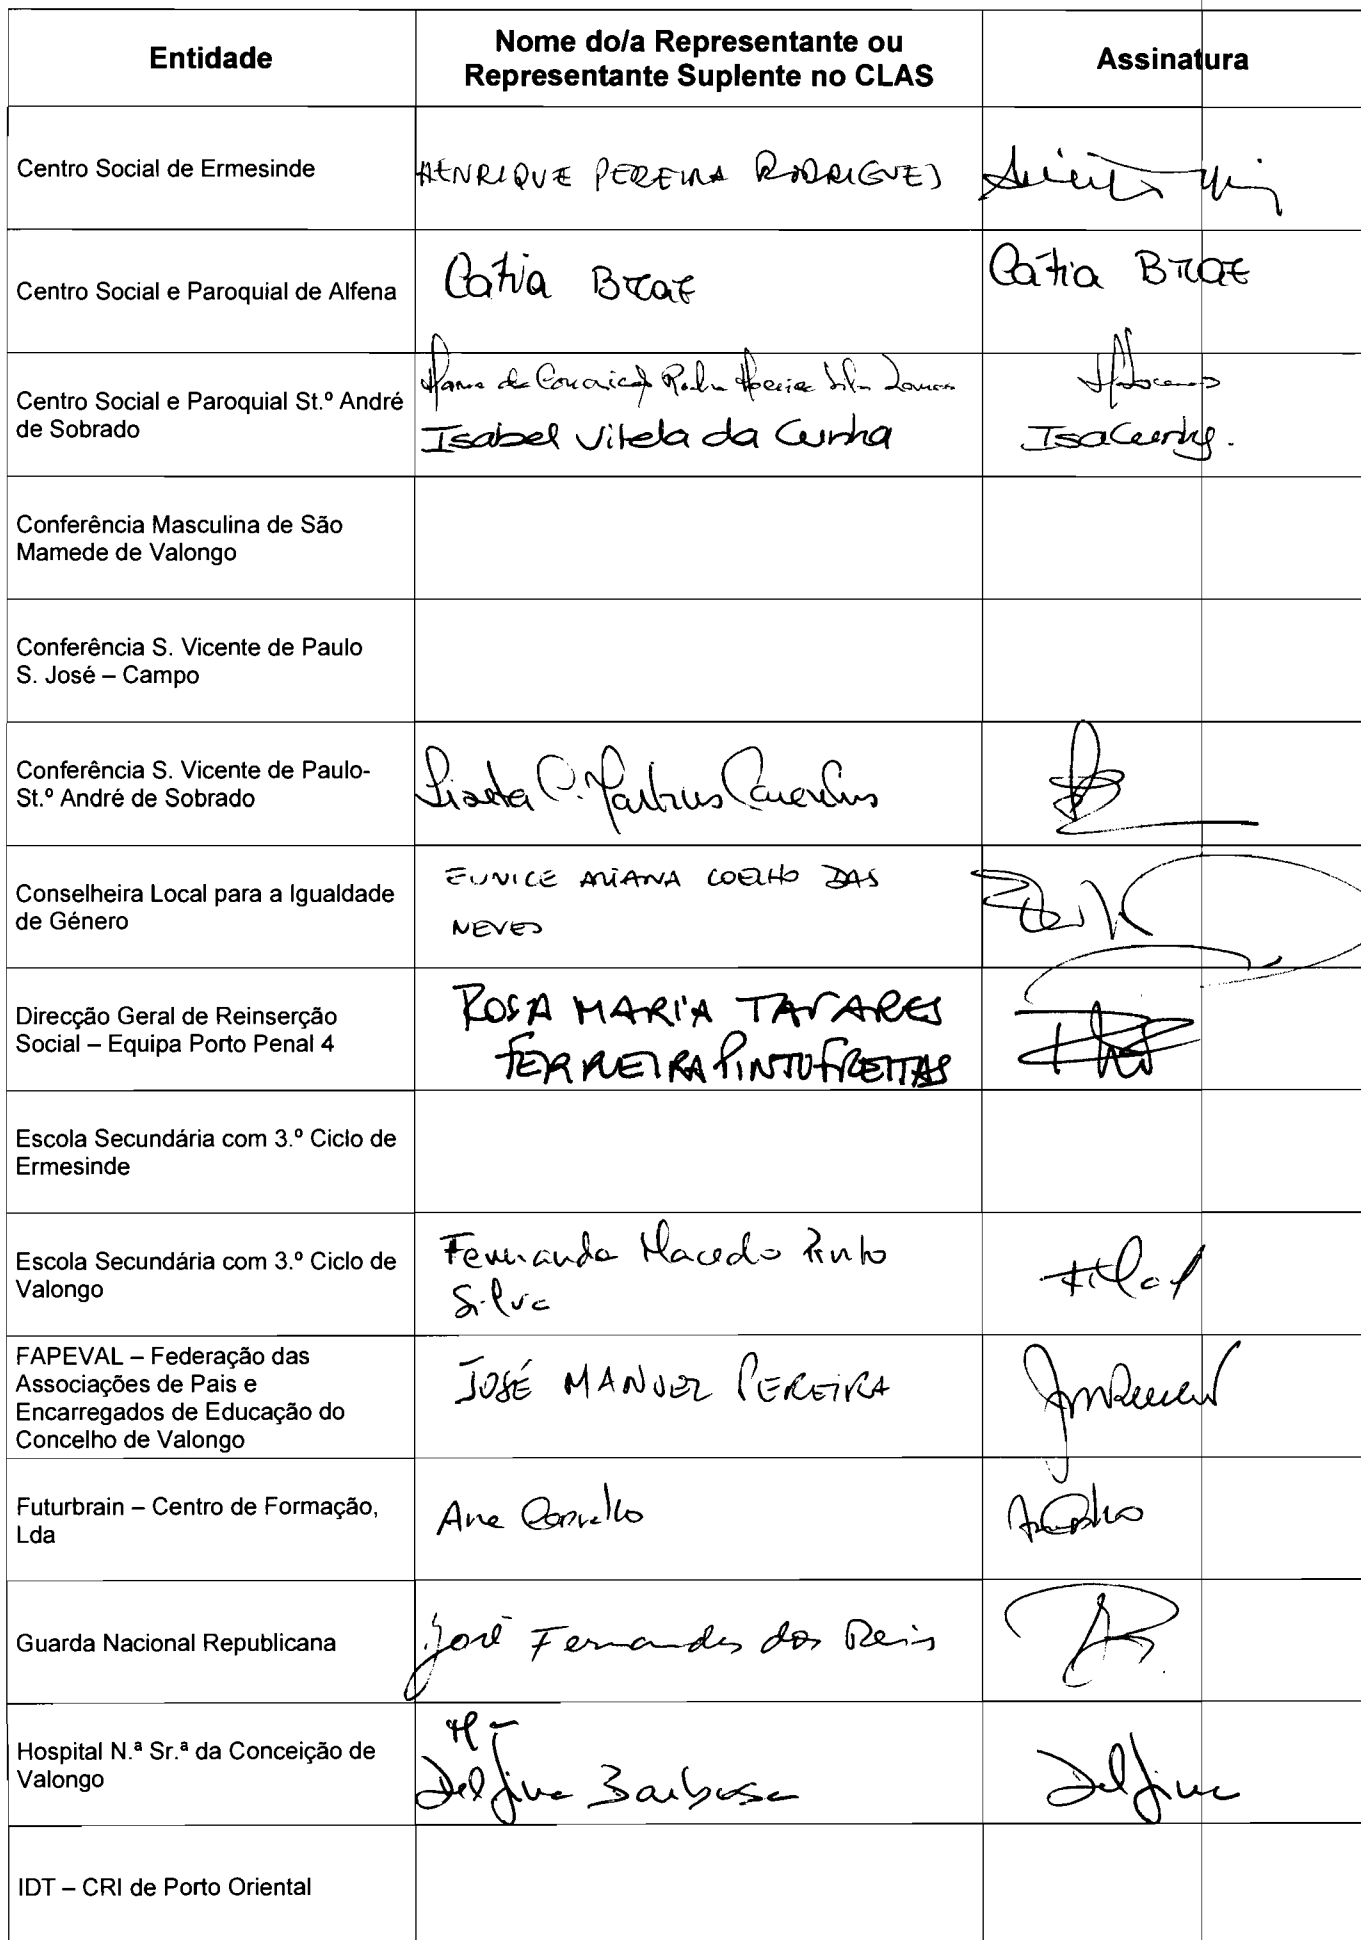 Entidade
Nome do/a Representante ou
Representante Suplente no CLAS
Assinatura
Centro Social de Ermesinde
HENRIQUE PEREIRA RODRIGUES
Centro Social e Paroquial de Alfena
Cátia Braz
Cátia Braz
Centro Social e Paroquial St.º André
de Sobrado
Isabel Vilela da Cunha
IsaCunha.
Conferência Masculina de São
Mamede de Valongo
Conferência S. Vicente de Paulo
S. José – Campo
Conferência S. Vicente de Paulo-
St.º André de Sobrado
Conselheira Local para a Igualdade
de Género
EUNICE ARIANA COELHO DAS
NEVES
Direcção Geral de Reinserção
Social – Equipa Porto Penal 4
ROSA MARIA TAVARES
FERREIRA PINTO FREITAS
Escola Secundária com 3.º Ciclo de
Ermesinde
Escola Secundária com 3.º Ciclo de
Valongo
Fernanda Macedo Pinto
Silva
FAPEVAL – Federação das
Associações de Pais e
Encarregados de Educação do
Concelho de Valongo
JOSÉ MANUEL PEREIRA
Futurbrain – Centro de Formação,
Lda
Ana
Guarda Nacional Republicana
José Fernandes dos Reis
Hospital N.ª Sr.ª da Conceição de
Valongo
Delfina Barbosa
Delfina
IDT – CRI de Porto Oriental